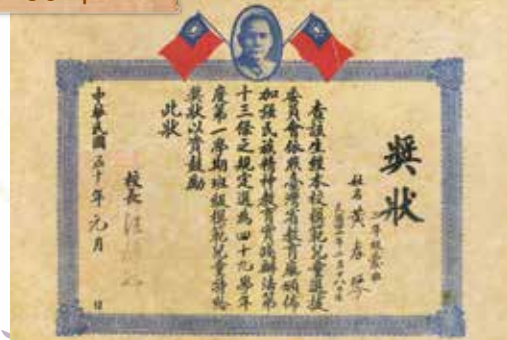 獎狀
姓名 黃春
查該生經本校模範兒童選拔
委員會依照臺灣省教育廳頒佈
加強民族精神教育實施辦法第
十三條之規定選為四十九學年
度第一學期班級模範兒童特給
獎狀以資鼓勵
此狀
校長
中華民國五十年元月 日